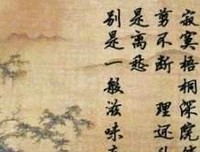 寂寞梧桐深院
剪不断 理还
是离愁
别是一般滋味